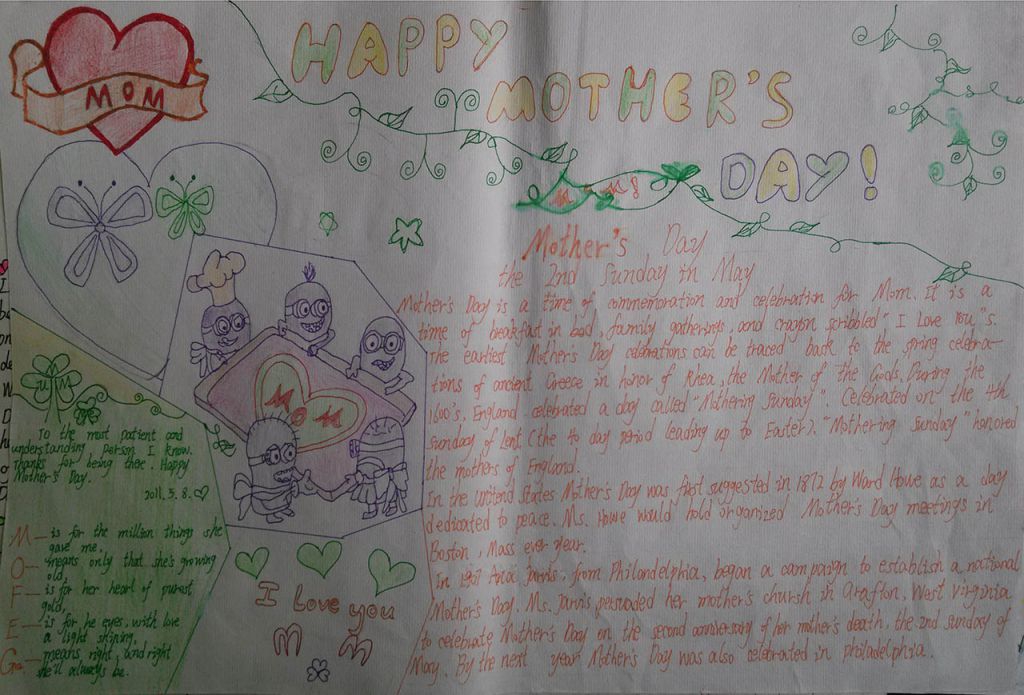 MOM
HAPPY
MOTHER'S
DAY!
Mother's Day
the 2nd Sunday in May
Mother's Day is a time of commemoration and celebration for Mom. It is a
time of breakfast in bad, family gatherings, and crayon scribbled "I Love You"s.
The earliest Mother's Day celebrations can be traced back to the spring celebra-
tions of ancient Greece in honor of Rhea, the Mother of the Gods. During the
1600's, England celebrated a day called "Mothering Sunday". Celebrated on the 4th
sunday of Lent (the 40 day period leading up to Easter), "Mothering Sunday" honored
the mothers of England.
In the united states Mother's Day was first suggested in 1872 by Ward Howe as a day
dedicated to peace. Ms. Howe would hold organized Mother's Day meetings in
Boston, Mass ever year.
In 1907 Ana Jarvis, from Philadelphia, began a campaign to establish a national
Mother's Day. Ms. Jarvis persuaded her mother's church in Grafton, West Virginia
to celebrate Mother's Day on the second anniversary of her mother's death, the 2nd sunday of
May. By the next year Mother's Day was also celebrated in philadelphia.
MOM
MUM
To the most patient and
understanding person I know.
Thanks for being there. Happy
Mother's Day.
2011.5.8.
M— is for the million things she
gave me,
O— means only that she's growing
old,
F— is for her heart of purest
gold,
E— is for he eyes, with love
a light shining,
G— means right, and right
she'll always be.
I love you
m m